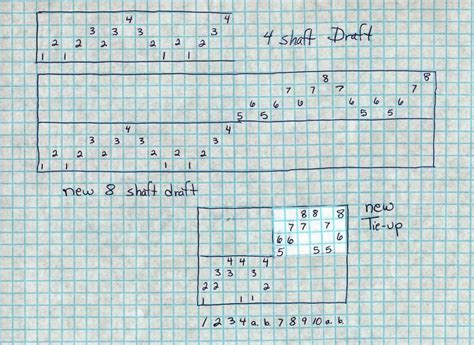 4 4
3 3 3 3
2 2 2 2 2 2
1 1 1 1
4 shaft Draft
8 8
7 7 7 7
6 6 6 6 6 6
5 5 5 5
4 4
3 3 3 3
2 2 2 2 2 2
1 1 1 1
new 8 shaft draft
new
Tie-up
8 8 8
7 7 7
6 6 6
5 5 5
4 4 4
3 3 3
2 2 2
1 1 1
1 2 3 4 a. b. 7 8 9 10 a. b.